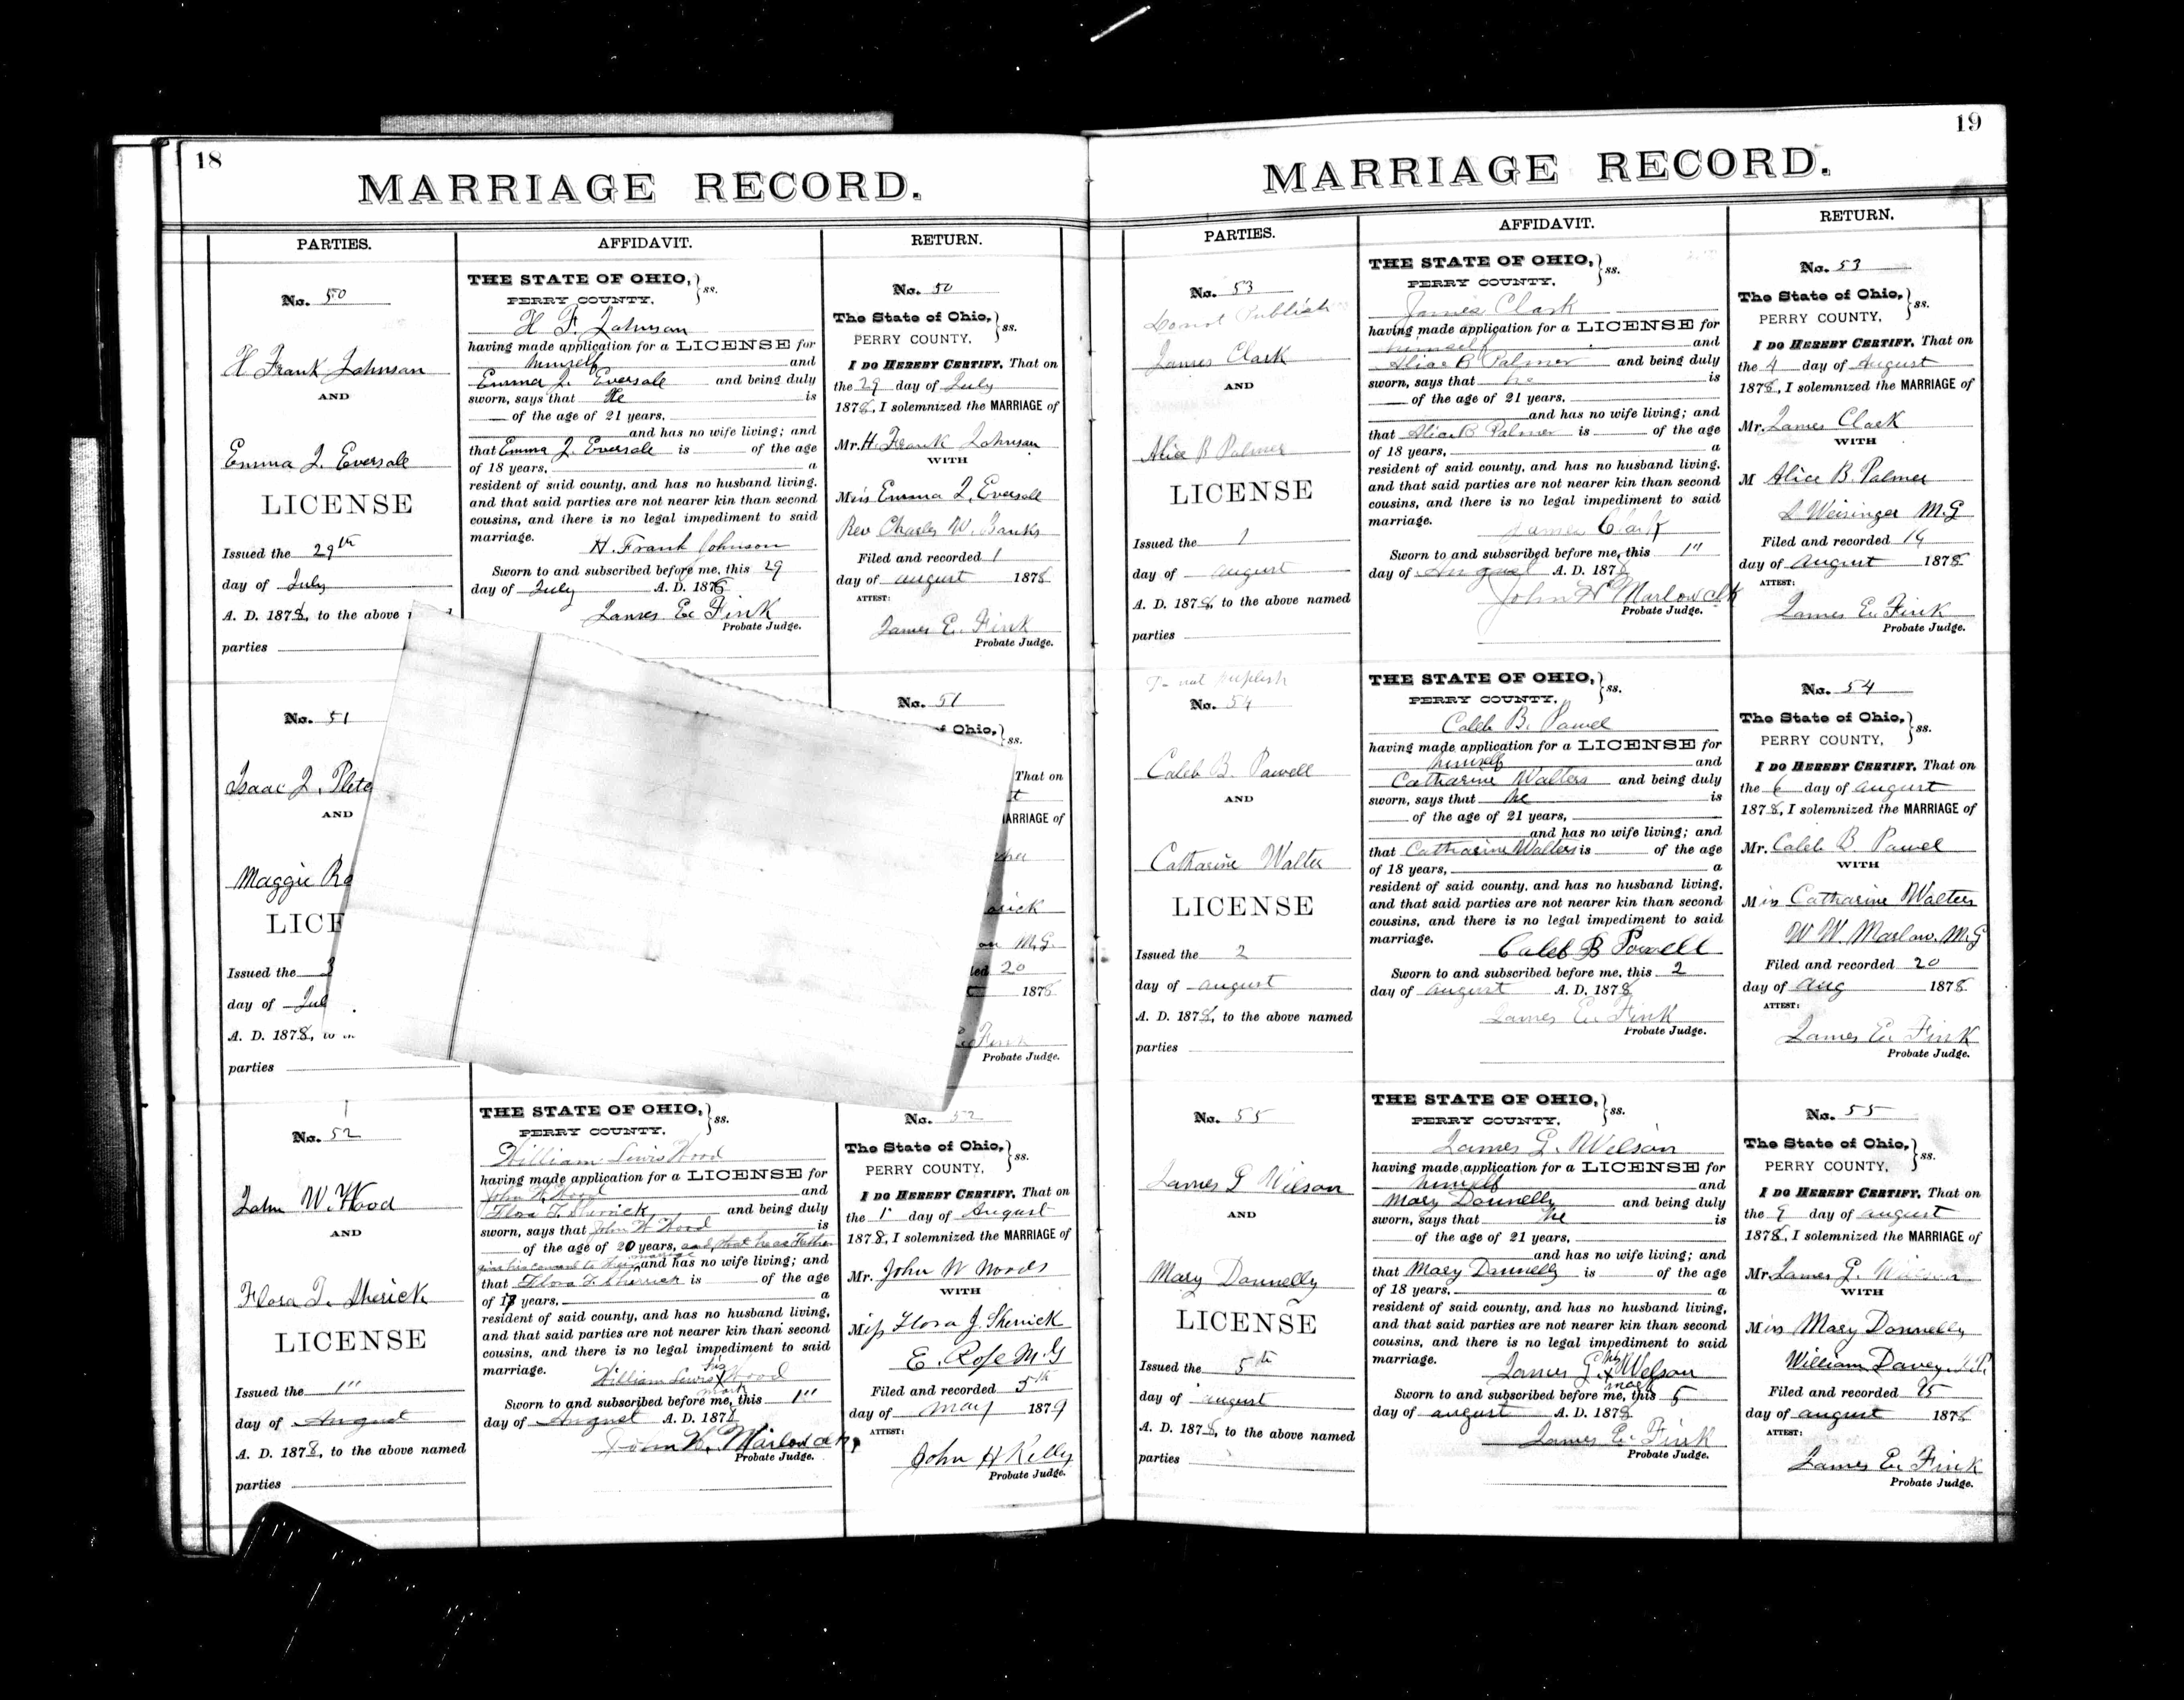 18
MARRIAGE RECORD.
PARTIES.
AFFIDAVIT.
RETURN.
No. 50
H Frank Johnson
AND
Emma J. Eversole
LICENSE
Issued the 29th
day of July
A. D. 1878, to the above
parties
THE STATE OF OHIO, } ss.
PERRY COUNTY,
H. F. Johnson
having made application for a LICENSE for
himself and
Emma J. Eversole and being duly
sworn, says that He is
of the age of 21 years,
and has no wife living; and
that Emma J. Eversole is of the age
of 18 years, a
resident of said county, and has no husband living,
and that said parties are not nearer kin than second
cousins, and there is no legal impediment to said
marriage.
H. Frank Johnson
Sworn to and subscribed before me, this 29
day of July A. D. 1878
James E. Fink
Probate Judge.
No. 50
The State of Ohio, } ss.
PERRY COUNTY,
I DO HEREBY CERTIFY, That on
the 29 day of July
1878, I solemnized the MARRIAGE of
Mr. H. Frank Johnson
WITH
Miss Emma J. Eversole
Rev Charles W. Banks
Filed and recorded 1
day of august 1878
ATTEST:
James E. Fink
Probate Judge.
No. 51
Isaac J.
AND
Maggie
LICE
Issued the 3
day of Jul
A. D. 1878, to
parties
No. 51
Ohio, } ss.
That on
MARRIAGE of
M.G.
20
1878
Probate Judge.
No. 52
John W. Wood
AND
Flora J. Sherick
LICENSE
Issued the 1"
day of August
A. D. 1878, to the above named
parties
THE STATE OF OHIO, } ss.
PERRY COUNTY,
William Lewis Wood
having made application for a LICENSE for
John W. Wood and
Flora J. Sherrick and being duly
sworn, says that John W Wood is
of the age of 20 years, and that he as Father
gives his consent to their marriage and has no wife living; and
that Flora J. Sherrick is of the age
of 17 years, a
resident of said county, and has no husband living,
and that said parties are not nearer kin than second
cousins, and there is no legal impediment to said
marriage.
William Lewis his X mark Wood
Sworn to and subscribed before me, this 1"
day of August A. D. 1878
John H. Marlow
Probate Judge.
No. 52
The State of Ohio, } ss.
PERRY COUNTY,
I DO HEREBY CERTIFY, That on
the 1" day of August
1878, I solemnized the MARRIAGE of
Mr. John W Woods
WITH
Miss Flora J. Sherrick
E. Rose M.G
Filed and recorded 5th
day of May 1879
ATTEST:
John H Kelly
Probate Judge.
19
MARRIAGE RECORD.
PARTIES.
AFFIDAVIT.
RETURN.
No. 53
Do not Publish
James Clark
AND
Alice B Palmer
LICENSE
Issued the 1
day of august
A. D. 1878, to the above named
parties
THE STATE OF OHIO, } ss.
PERRY COUNTY,
James Clark
having made application for a LICENSE for
himself and
Alice B Palmer and being duly
sworn, says that he is
of the age of 21 years,
and has no wife living; and
that Alice B Palmer is of the age
of 18 years, a
resident of said county, and has no husband living,
and that said parties are not nearer kin than second
cousins, and there is no legal impediment to said
marriage.
James Clark
Sworn to and subscribed before me, this 1"
day of August A. D. 1878
John H Marlow clk
Probate Judge.
No. 53
The State of Ohio, } ss.
PERRY COUNTY,
I DO HEREBY CERTIFY, That on
the 4 day of august
1878, I solemnized the MARRIAGE of
Mr. James Clark
WITH
M Alice B. Palmer
Weisinger M.G
Filed and recorded
day of august 1878
ATTEST:
James E. Fink
Probate Judge.
Do not publish
No. 54
Caleb B. Powell
AND
Catharine Walter
LICENSE
Issued the 2
day of august
A. D. 1878, to the above named
parties
THE STATE OF OHIO, } ss.
PERRY COUNTY,
Caleb B. Powel
having made application for a LICENSE for
himself and
Catharine Walters and being duly
sworn, says that he is
of the age of 21 years,
and has no wife living; and
that Catharine Walters is of the age
of 18 years, a
resident of said county, and has no husband living,
and that said parties are not nearer kin than second
cousins, and there is no legal impediment to said
marriage.
Caleb B Powell
Sworn to and subscribed before me, this 2
day of august A. D. 1878
James E. Fink
Probate Judge.
No. 54
The State of Ohio, } ss.
PERRY COUNTY,
I DO HEREBY CERTIFY, That on
the 6 day of august
1878, I solemnized the MARRIAGE of
Mr. Caleb B. Powel
WITH
Miss Catharine Walters
W W. Marlow. M.G
Filed and recorded 20
day of aug 1878
ATTEST:
James E. Fink
Probate Judge.
No. 55
James G Wilson
AND
Mary Donnelly
LICENSE
Issued the 5th
day of august
A. D. 1878, to the above named
parties
THE STATE OF OHIO, } ss.
PERRY COUNTY,
James G. Wilson
having made application for a LICENSE for
himself and
Mary Donnelly and being duly
sworn, says that he is
of the age of 21 years,
and has no wife living; and
that Mary Donnelly is of the age
of 18 years, a
resident of said county, and has no husband living,
and that said parties are not nearer kin than second
cousins, and there is no legal impediment to said
marriage.
James G. his X mark Welson
Sworn to and subscribed before me, this 5
day of august A. D. 1878
James E. Fink
Probate Judge.
No. 55
The State of Ohio, } ss.
PERRY COUNTY,
I DO HEREBY CERTIFY, That on
the 9 day of august
1878, I solemnized the MARRIAGE of
Mr. James G. Wilson
WITH
Miss Mary Donnelly
William Davey
Filed and recorded
day of august 1878
ATTEST:
James E. Fink
Probate Judge.